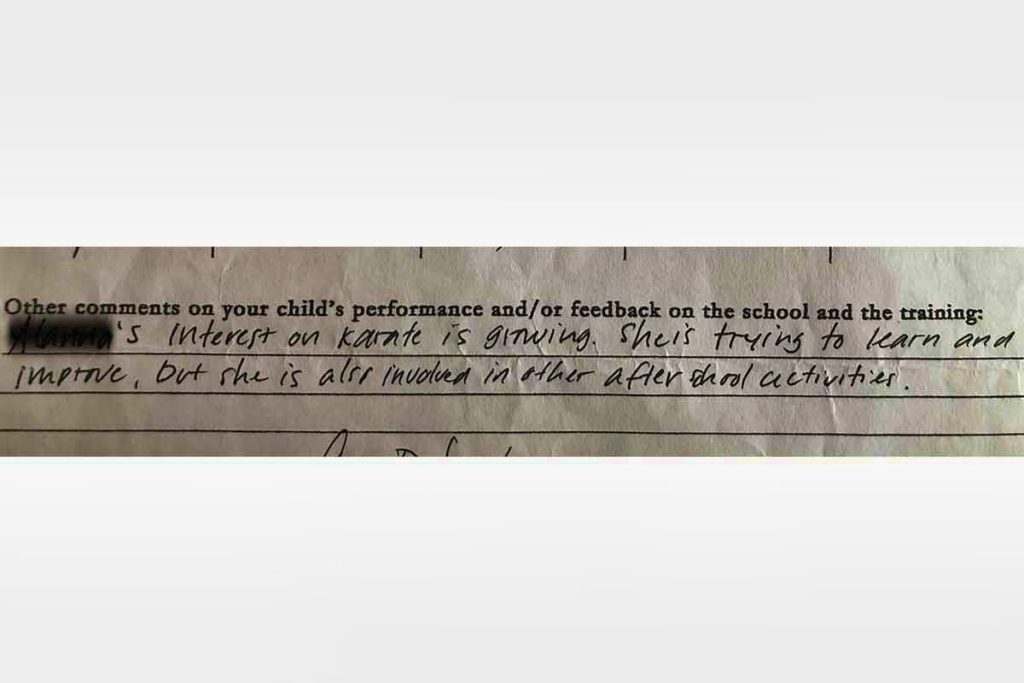 Other comments on your child's performance and/or feedback on the school and the training:
's interest on karate is growing. She is trying to learn and
improve, but she is also involved in other after shool activities.